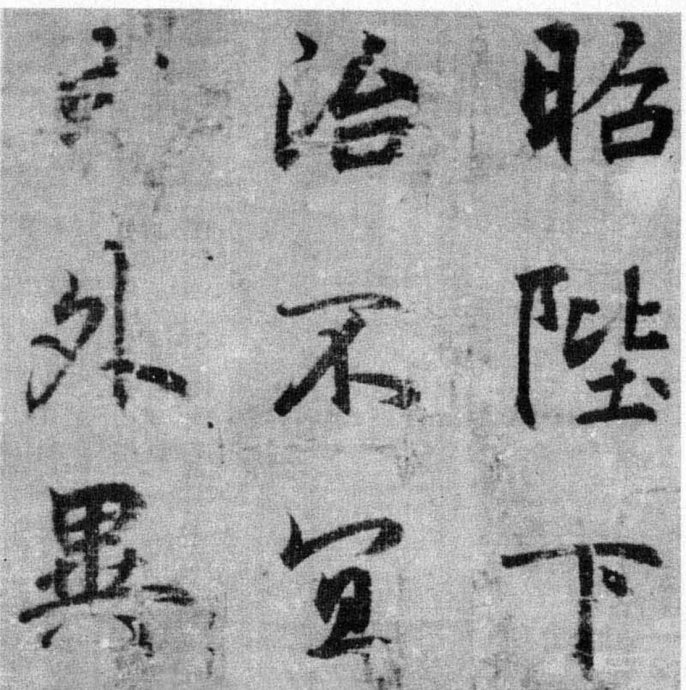 昭陛下
治不宜
外異